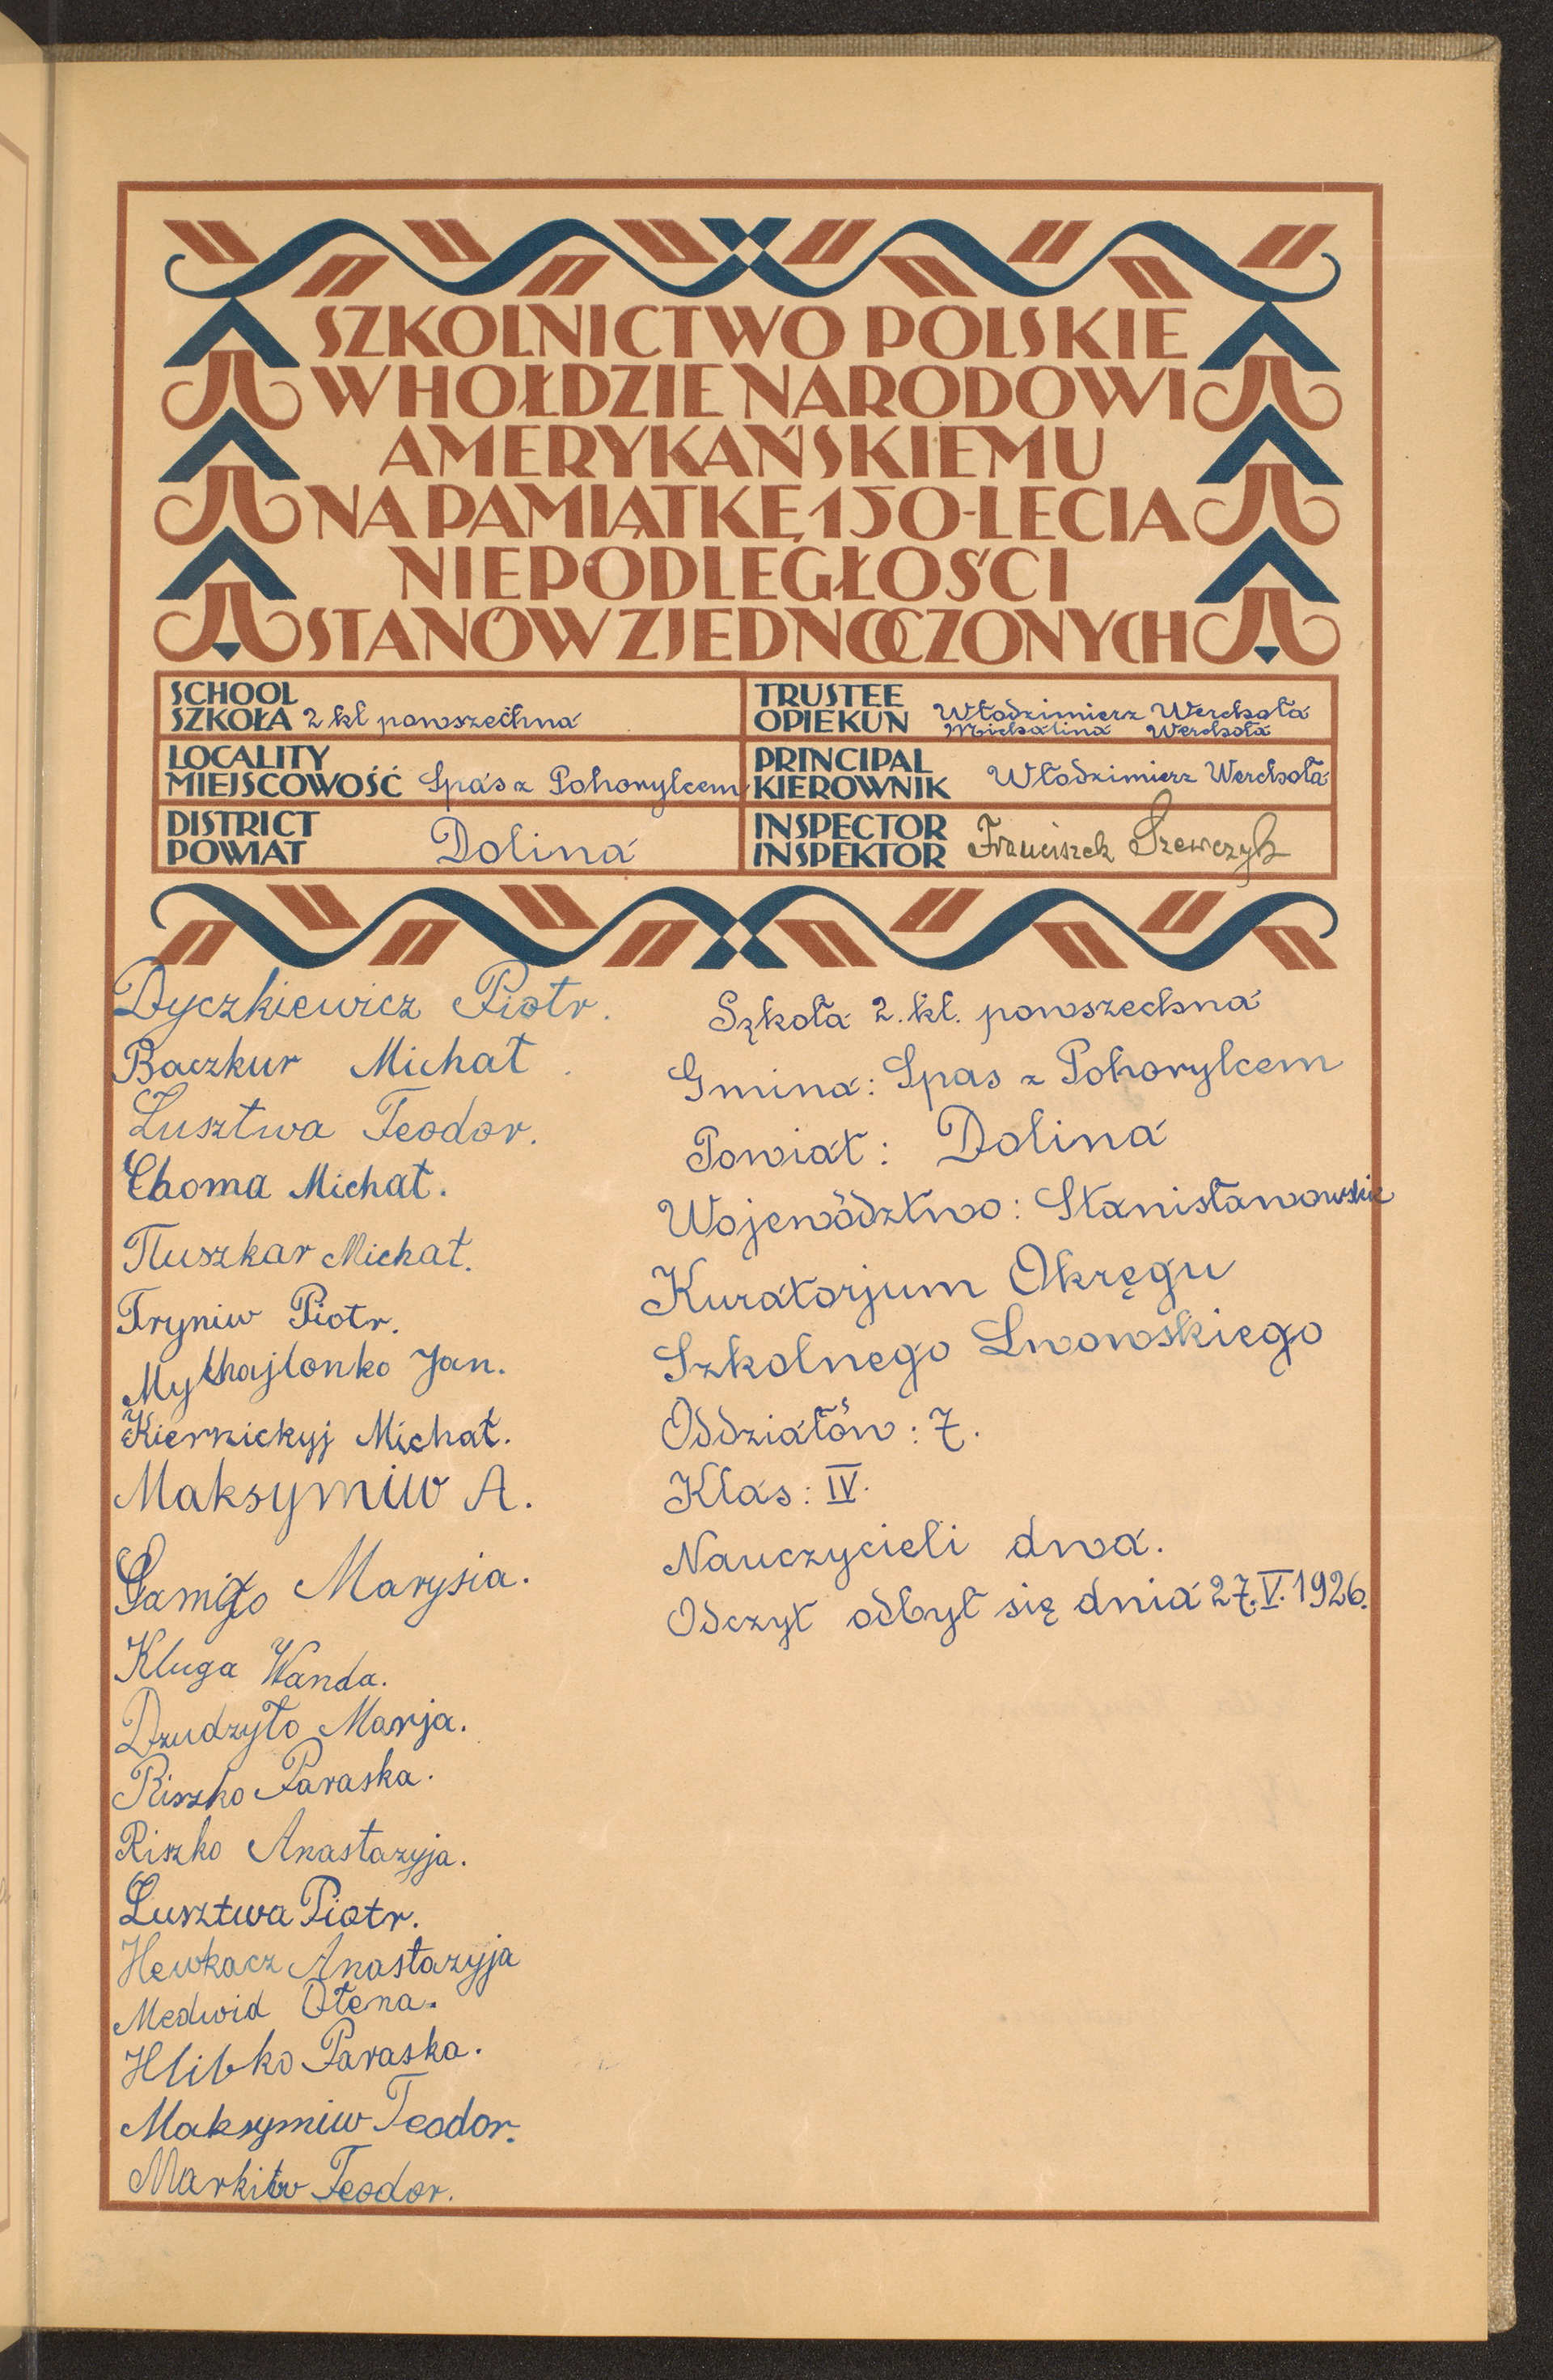 SZKOLNICTWO POLSKIE
W HOŁDZIE NARODOWI
AMERYKAŃSKIEMU
NA PAMIĄTKĘ 150-LECIA
NIEPODLEGŁOŚCI
STANÓW ZJEDNOCZONYCH
SCHOOL
SZKOŁA 2 kl powszechna
TRUSTEE
OPIEKUN Włodzimierz Werchoła
Michalina Werchoła
LOCALITY
MIEJSCOWOŚĆ Spas z Pohorylcem
PRINCIPAL
KIEROWNIK Włodzimierz Werchoła
DISTRICT
POWIAT Dolina
INSPECTOR
INSPEKTOR Franciszek Szewczyk
Dyczkiewicz Piotr.
Baczkur Michał.
Łusztwa Teodor.
Choma Michał.
Tluszkar Michał.
Fryniw Piotr.
Mychajlonko Jan.
Kiernickyj Michał.
Maksymiw A.
Marysia.
Kluga Wanda.
Dzudzyło Marja.
Riszko Paraska.
Riszko Anastazyja.
Łusztwa Piotr.
Hewkacz Anastazyja
Medwid Ołena.
Hlibko Paraska.
Maksymiw Teodor.
Markiw Teodor.
Szkoła 2. kl. powszechna
Gmina: Spas z Pohorylcem
Powiat: Dolina
Województwo: Stanisławowskie
Kuratorjum Okręgu
Szkolnego Lwowskiego
Oddziałów: 7.
Klas: IV.
Nauczycieli dwa.
Odczyt odbył się dnia 27.V.1926.